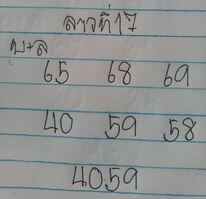 ลาวที่17
บ+ล
65 68 69
40 59 58
4059